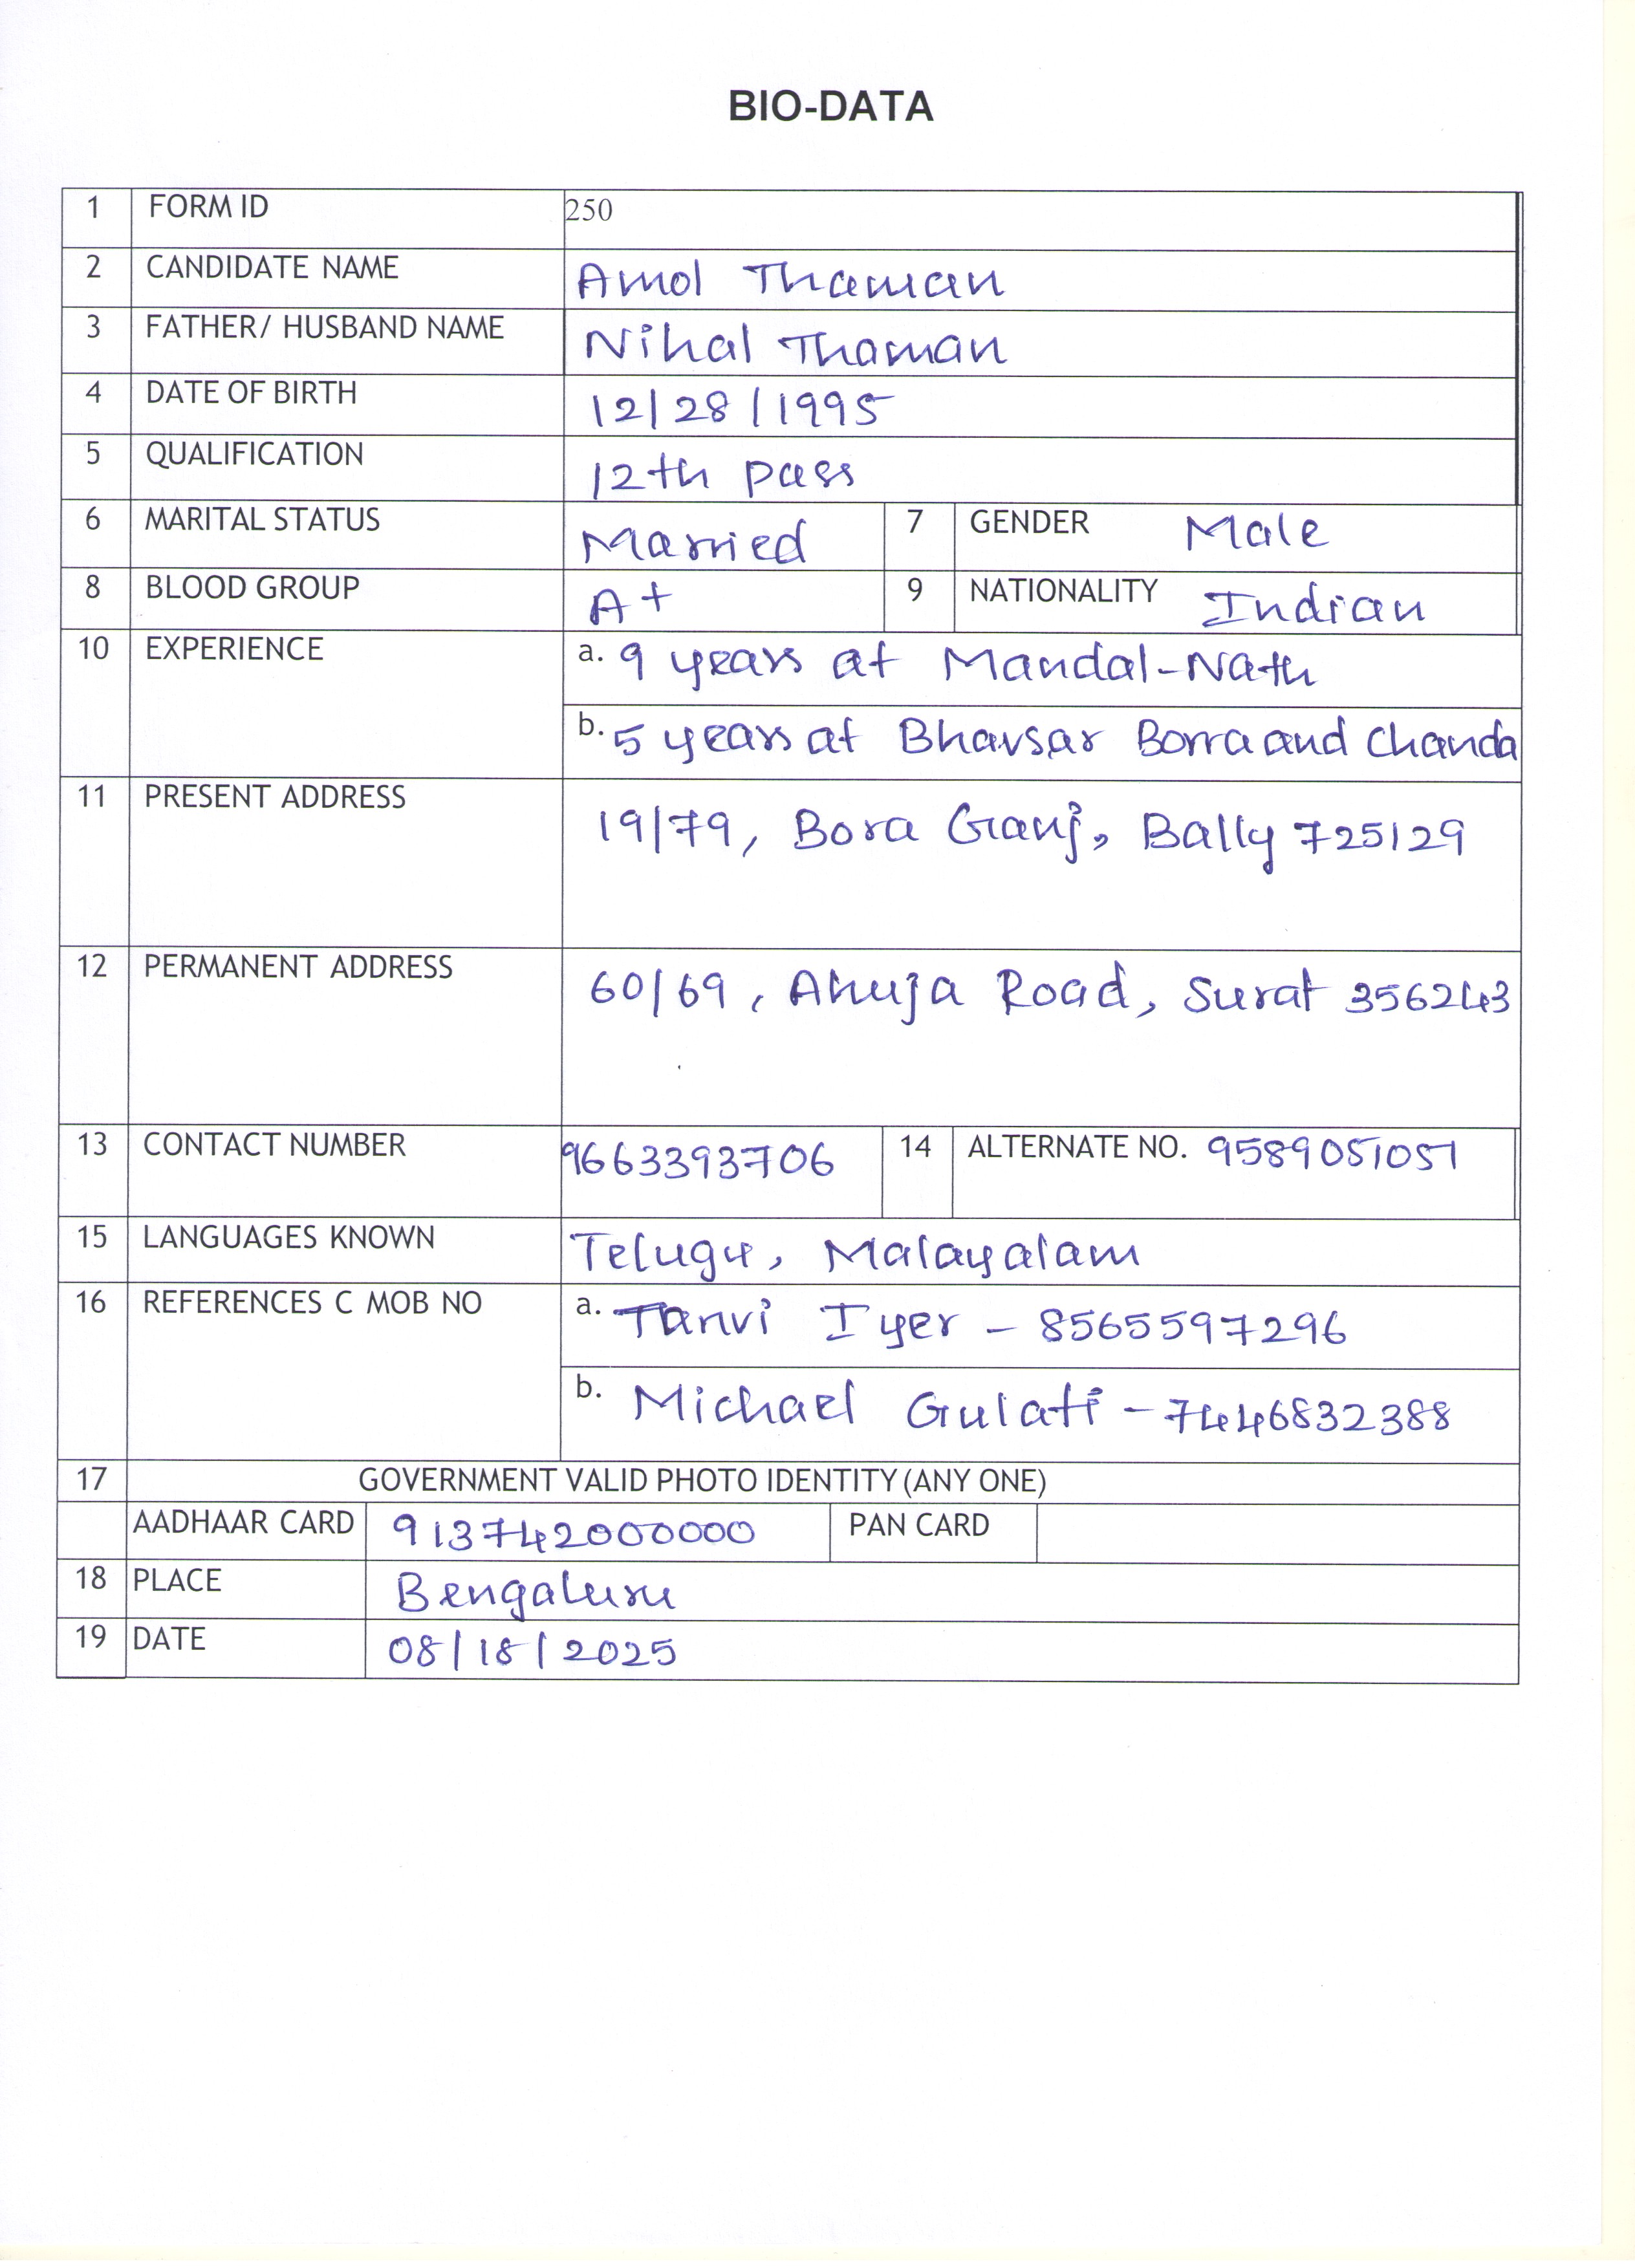 BIO-DATA
1 FORM ID 250
2 CANDIDATE NAME Amol Thaman
3 FATHER/ HUSBAND NAME Nihal Thaman
4 DATE OF BIRTH 12/28/1995
5 QUALIFICATION 12th pass
6 MARITAL STATUS Married 7 GENDER Male
8 BLOOD GROUP A+ 9 NATIONALITY Indian
10 EXPERIENCE a. 9 years at Mandal-Nath
b. 5 years at Bhavsar Borra and Chanda
11 PRESENT ADDRESS 19/79, Bora Ganj, Bally 725129
12 PERMANENT ADDRESS 60/69, Ahuja Road, Surat 356243
13 CONTACT NUMBER 9663393706 14 ALTERNATE NO. 9589051051
15 LANGUAGES KNOWN Telugu, Malayalam
16 REFERENCES C MOB NO a. Tanvi Iyer - 8565597296
b. Michael Gulati - 7446832388
17 GOVERNMENT VALID PHOTO IDENTITY (ANY ONE)
AADHAAR CARD 913742000000 PAN CARD
18 PLACE Bengaluru
19 DATE 08/18/2025